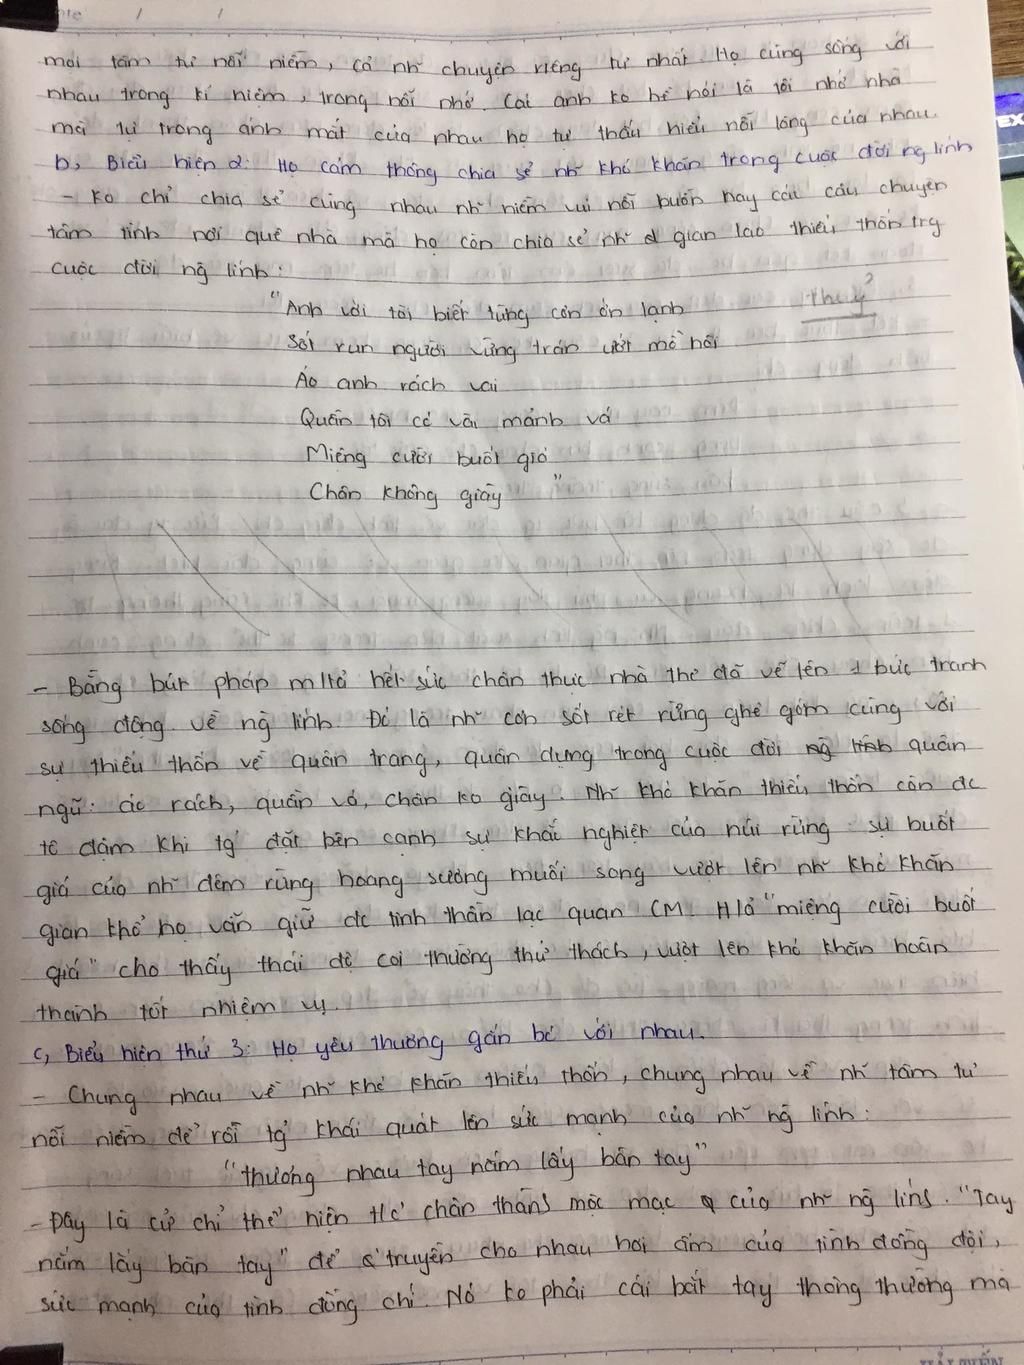 mọi tâm tư nỗi niềm, cả nh~ chuyện riêng tư nhất. Họ cùng sống với
nhau trong kỉ niệm, trong nỗi nhớ. Các anh ko hề nói là tôi nhớ nhà
mà từ trong ánh mắt của nhau họ tự thấu hiểu nỗi lòng của nhau.
b, Biểu hiện 2: Họ cảm thông chia sẻ nh~ khó khăn trong cuộc đời ng lính
- Ko chỉ chia sẻ cùng nhau nh~ niềm vui nỗi buồn hay các câu chuyện
tâm tình nơi quê nhà mà họ còn chia sẻ nh~ gian lao thiếu thốn trg
cuộc đời ng lính:
"Anh với tôi biết từng cơn ớn lạnh
Thuỷ
Sốt run người vừng trán ướt mồ hôi
Áo anh rách vai
Quần tôi có vài mảnh vá
Miệng cười buốt giá
Chân không giày"
- Bằng bút pháp m/tả hết sức chân thực nhà thơ đã vẽ lên 1 bức tranh
sống động về ng lính. Đó là nh~ cơn sốt rét rừng ghê gớm cùng với
sự thiếu thốn về quân trang, quân dụng trong cuộc đời quân
ngũ: áo rách, quần vá, chân ko giày. Nh~ khó khăn thiếu thốn còn đc
tô đậm khi tg' đặt bên cạnh sự khắc nghiệt của núi rừng: sự buốt
giá của nh~ đêm rừng hoang sương muối song vượt lên nh~ khó khăn
gian khổ họ vẫn giữ đc tinh thần lạc quan CM. H/ả "miệng cười buốt
giá" cho thấy thái độ coi thường thử thách, vượt lên khó khăn hoàn
thành tốt nhiệm vụ.
c, Biểu hiện thứ 3: Họ yêu thương gắn bó với nhau.
- Chung nhau về nh~ khó khăn thiếu thốn, chung nhau về nh~ tâm tư
nỗi niềm để rồi tg' khái quát lên sức mạnh của nh~ ng lính:
"thương nhau tay nắm lấy bàn tay"
- Đây là cử chỉ thể hiện t/c' chân thành mộc mạc của nh~ ng lính. "Tay
nắm lấy bàn tay" để truyền cho nhau hơi ấm của tình đồng đội,
sức mạnh của tình đồng chí. Nó ko phải cái bắt tay thông thường mà